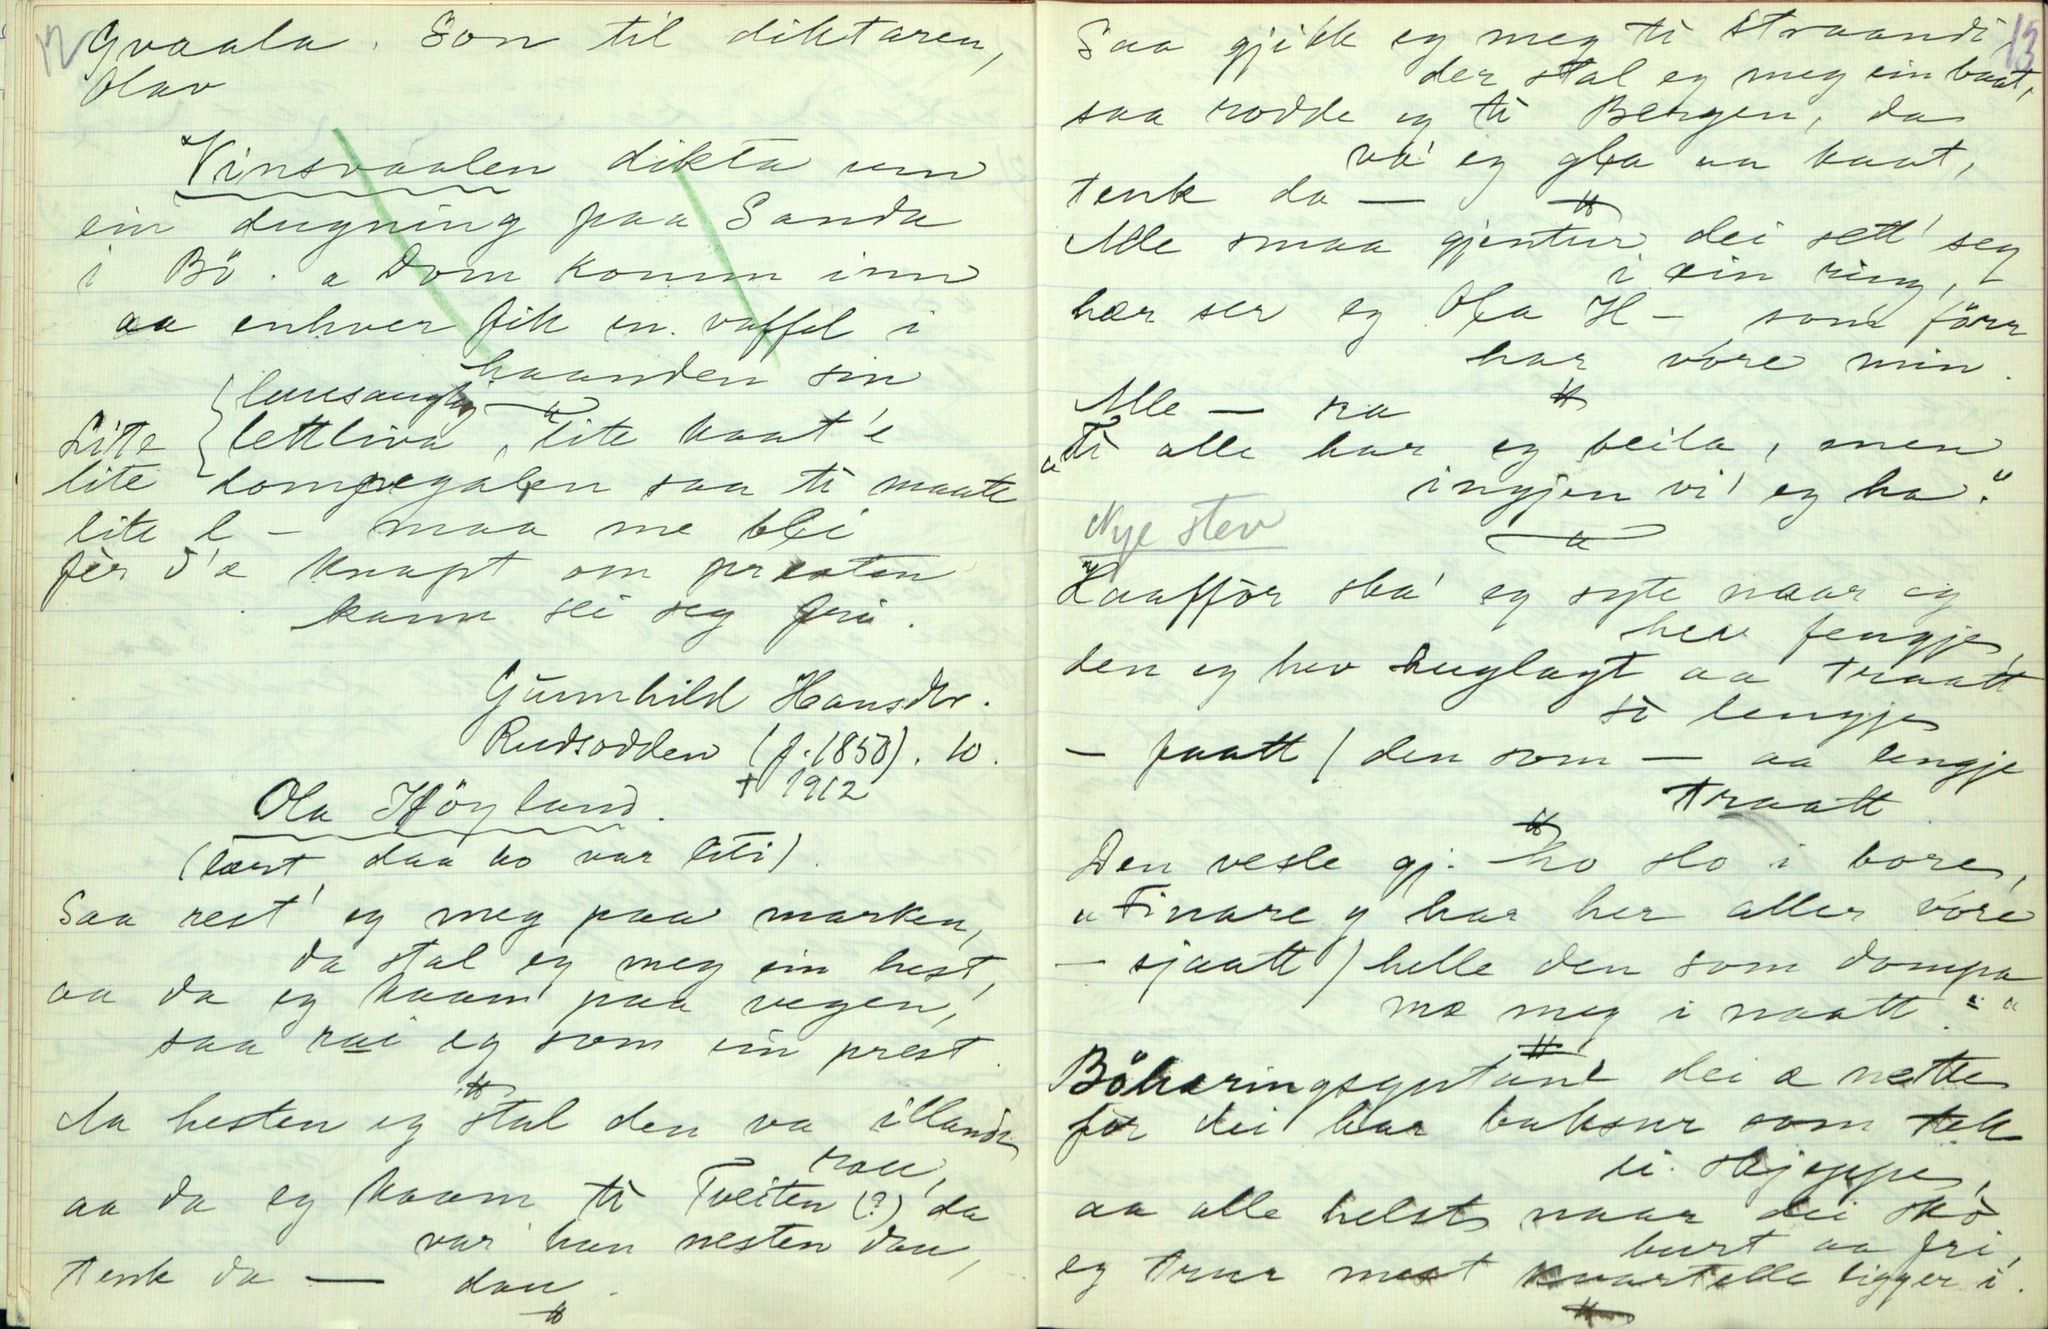 12
Gvaala. Son til diktaren,
Olav
Vinsvaalen dikta um
ein dugning paa Sanda
i Bö. a Dom komm inn
aa enhver fik en vaffel i
haanden sin
lausaugtig
Lite lettliva, lite kaat'e
lite dompegalen saa ti maate
lite l - maa me bli
fèr d'æ knapt om presten
kann sei seg fri.
Gunnhild Hansdtr.
Rudsodden (f. 1850). 10.
† 1912
Ola Höyland.
(lært daa ho var liti).
Saa rest' eg meg paa marken,
da stal eg meg ein hest,
aa da eg kaam paa vegen,
saa rai eg som ein prest.
Aa hesten eg stal den va illands
rau,
aa da eg kaam ti Tveiten (?) da
var han nesten dau,
tenk da — dau.
13
Saa gjikk eg meg ti straandi,
der stal eg meg ein baat,
saa rodde eg ti Bergen, da
va' eg gla aa kaat,
tenk da —
Alle smaa gjentur dei sett' seg
i ein ring,
her ser eg Ola H - som förr
har vore min.
Alle — ra
"Ti alle har eg beila, men
ingjen vi' eg ha."
Nye stev
Haaffòr ska' eg syte naar eg
hev fengje
den eg hev huglagt aa traatt
så lengje
- faatt / den som — aa lengje
traatt
Den vesle gj. ho slo i bore,
"Finare g har her aller vore
- sjaatt / helle den som dompa
mæ meg i naatt."
Böheringsgutane dei æ nette
før dei har buksur som tek
ei skjeppe,
aa alle helst naar dei ska
burt aa fri,
eg trur mest kvartelle ligger i.